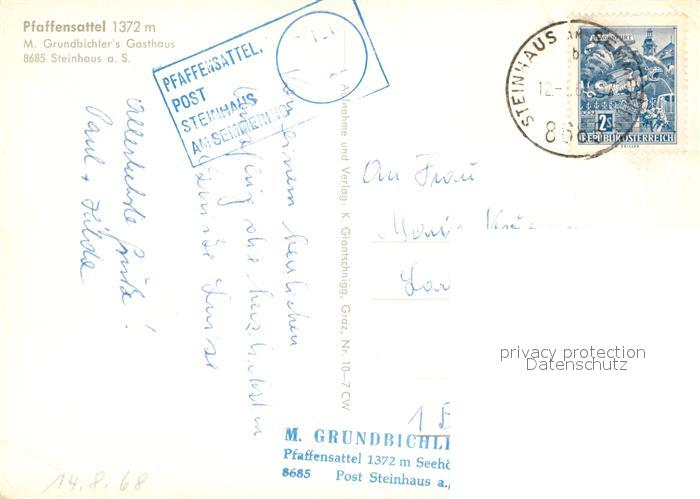 Pfaffensattel 1372 m
M. Grundbichler's Gasthaus
8685 Steinhaus a. S.
PFAFFENSATTEL,
POST
STEINHAUS
AM SEMMERING
STEINHAUS AM SEMMERING
12.-
b
86
2s
REPUBLIK ÖSTERREICH
Aufnahme und Verlag: K. Glantschnigg, Graz, Nr. 10-7 CW
Von einem herrlichen
Ausflug die herzlichsten
Grüße Luise
Allerliebste Grüße!
Paul + Hilda
An Frau
Maria
privacy protection
Datenschutz
M. GRUNDBICHL
Pfaffensattel 1372 m Seehö
8685 Post Steinhaus a.
14.8.68